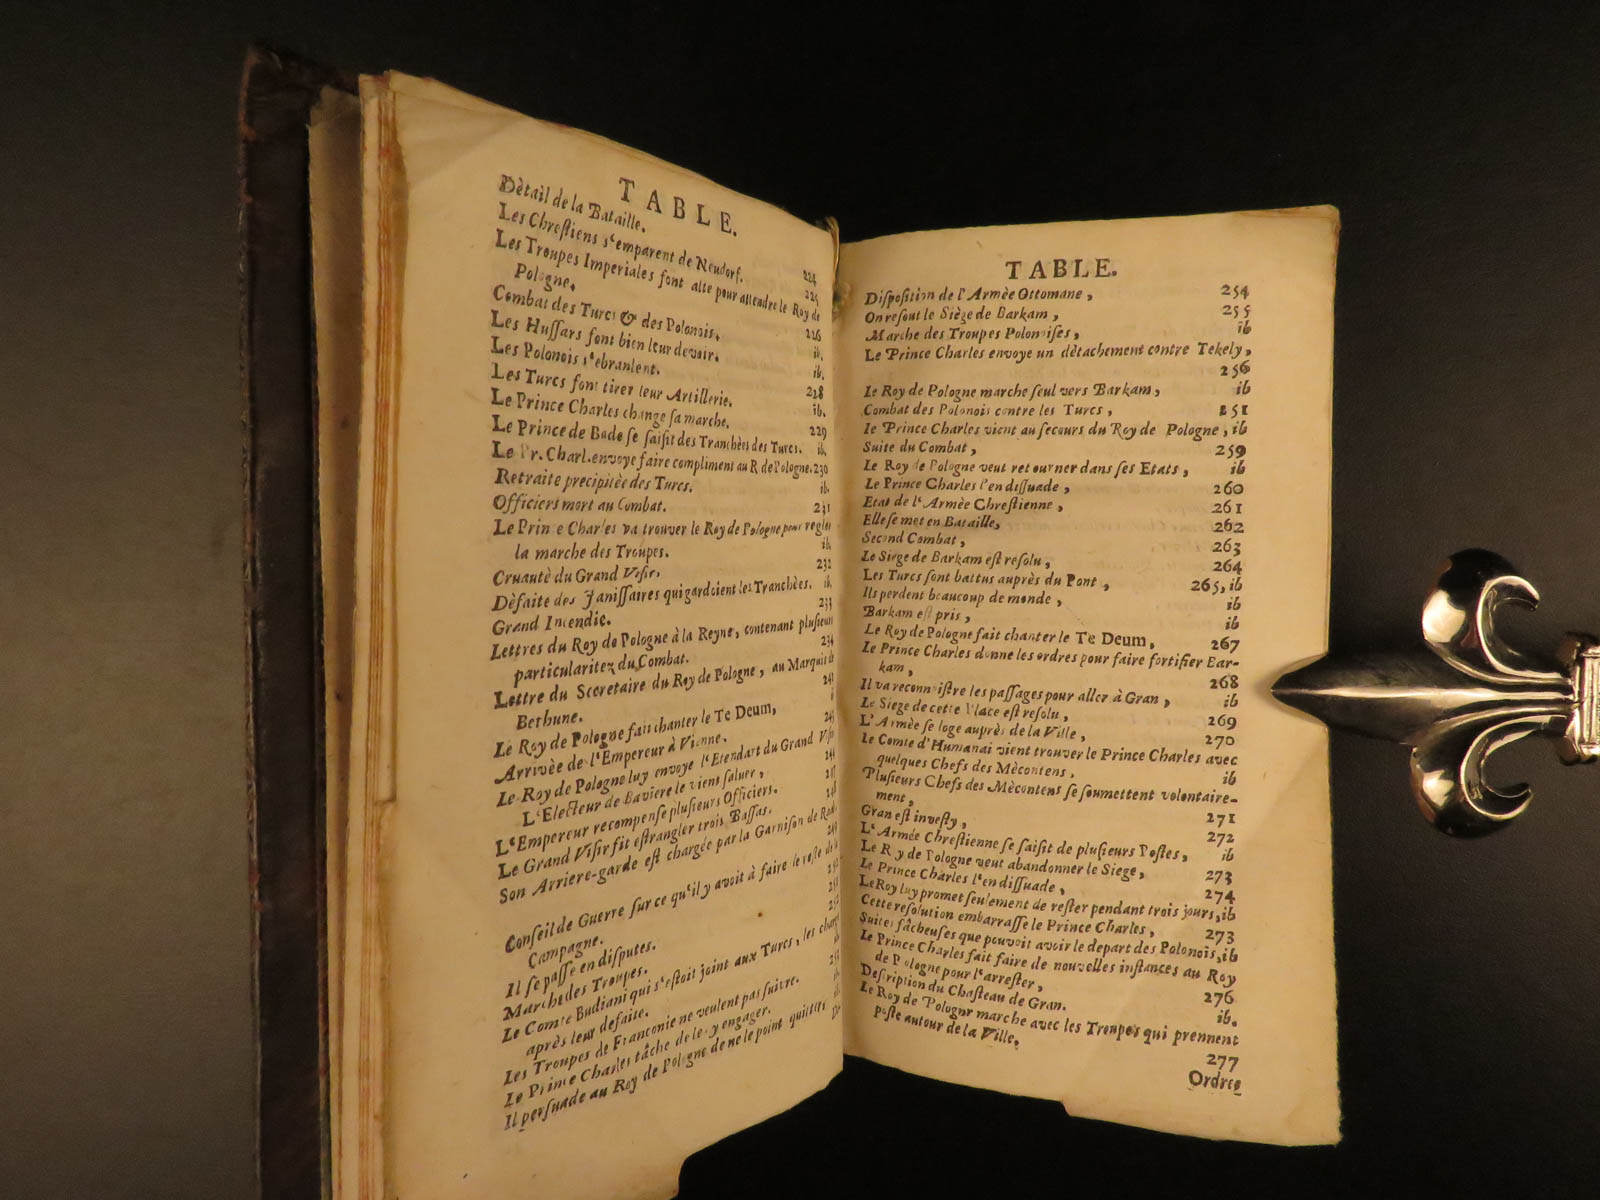 TABLE.
Dètail de la Bataille.
Les Chreſtiens s'emparent de Neudorf. 224
Les Troupes Imperiales font alte pour attendre le Roy de 225
Pologne. 226
Combat des Turcs & des Polonois. ib.
Les Huſſars font bien leur devoir. ib.
Les Polonois s'ebranlent. 228
Les Turcs font tirer leur Artillerie. ib.
Le Prince Charles change ſa marche. 229
Le Prince de Bade ſe ſaiſit des Tranchèes des Turcs. ib.
Le Pr. Charl. envoye faire compliment au R. de Pologne. 230
Retraite precipitèe des Turcs. ib.
Officiers mort au Combat. 231
Le Prince Charles va trouver le Roy de Pologne pour regler
la marche des Troupes. ib.
Cruautè du Grand Viſir. 232
Dèfaite des Janiſſaires qui gardoient les Tranchèes. ib.
Grand Incendie. 233
Lettres du Roy de Pologne à la Reyne, contenant pluſieurs
particularitez du Combat. 234
Lettre du Secretaire du Roy de Pologne, au Marquis de
Bethune. 241
Le Roy de Pologne fait chanter le Te Deum,
Arrivèe de l'Empereur à Vienne. 243
Le Roy de Pologne luy envoye l'Etendart du Grand Viſir
L'Electeur de Baviere le vient ſaluer,
L'Empereur recompenſe pluſieurs Officiers.
Le Grand Viſir fit eſtrangler trois Baſſas. 248
Son Arriere-garde eſt chargée par la Garniſon de 249
Conſeil de Guerre ſur ce qu'il y avoit à faire le reſte de la
Campagne.
Il ſe paſſe en diſputes.
Marche des Troupes.
Le Comte Budiani qui s'eſtoit joint aux Turcs, les charge
après leur defaite.
Les Troupes de Franconie ne veulent pas ſuivre.
Le Prince Charles tâche de les y engager.
Il perſuade au Roy de Pologne de ne le point quitter
TABLE.
Diſpoſition de l'Armèe Ottomane, 254
On reſout le Siège de Barkam, 255
Marche des Troupes Polonoiſes, ib
Le Prince Charles envoye un dètachement contre Tekely,
256
Le Roy de Pologne marche ſeul vers Barkam, ib
Combat des Polonois contre les Turcs, 251
Le Prince Charles vient au ſecours du Roy de Pologne, ib
Suite du Combat, 259
Le Roy de Pologne veut retourner dans ſes Etats, ib
Le Prince Charles l'en diſſuade, 260
Etat de l'Armèe Chreſtienne, 261
Elle ſe met en Bataille, 262
Second Combat, 263
Le Siege de Barkam eſt reſolu, 264
Les Turcs ſont battus auprès du Pont, 265, ib
Ils perdent beaucoup de monde, ib
Barkam eſt pris, ib
Le Roy de Pologne fait chanter le Te Deum, 267
Le Prince Charles donne les ordres pour faire fortifier Bar-
kam, 268
Il va reconnoiſtre les paſſages pour aller à Gran, ib
Le Siege de cette Place eſt reſolu, 269
L'Armèe ſe loge auprès de la Ville, 270
Le Comte d'Humanai vient trouver le Prince Charles avec
quelques Chefs des Mècontens, ib
Pluſieurs Chefs des Mècontens ſe ſoumettent volontaire-
ment, 271
Gran eſt inveſty, 272
L'Armée Chreſtienne ſe ſaiſit de pluſieurs Poſtes, ib
Le Roy de Pologne veut abandonner le Siege, 273
Le Prince Charles l'en diſſuade, 274
Le Roy luy promet ſeulement de reſter pendant trois jours, ib
Cette reſolution embarraſſe le Prince Charles, 273
Suites fâcheuſes que pouvoit avoir le depart des Polonois, ib
Le Prince Charles fait faire de nouvelles inſtances au Roy
de Pologne pour l'arreſter, 276
Deſcription du Chaſteau de Gran. ib.
Le Roy de Pologne marche avec les Troupes qui prennent
poſte autour de la Ville, 277
Ordres